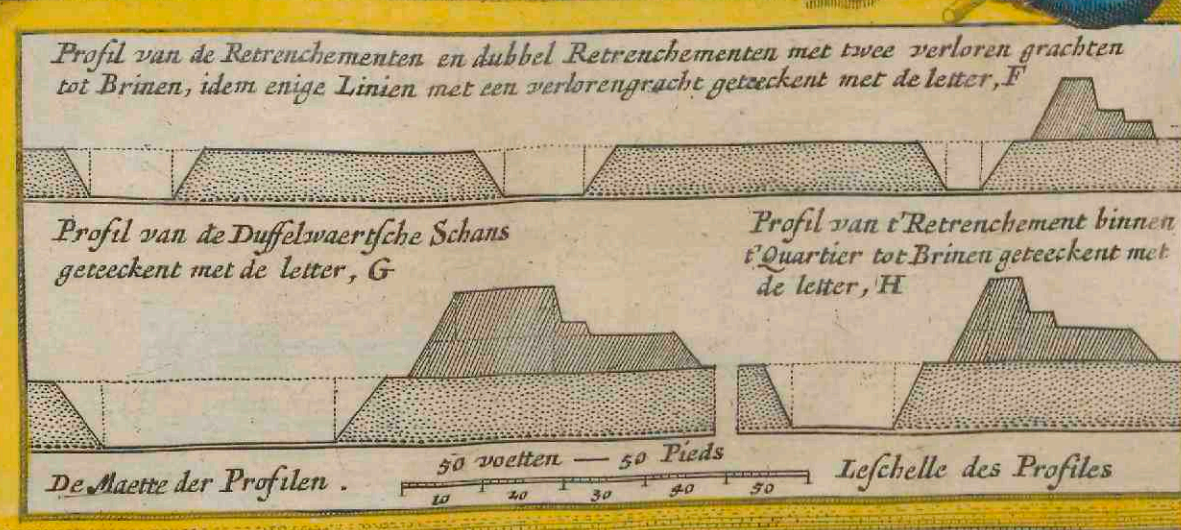 Profil van de Retrenchementen en dubbel Retrenchementen met twee verloren grachten
tot Brinen, idem enige Linien met een verlorengracht geteeckent met de letter, F
Profil van de Duffelwaertſche Schans
geteeckent met de letter, G
Profil van t'Retrenchement binnen
t'Quartier tot Brinen geteeckent met
de letter, H
50 voetten — 50 Pieds
De Maette der Profilen .
10 20 30 40 50
Leſchelle des Profiles